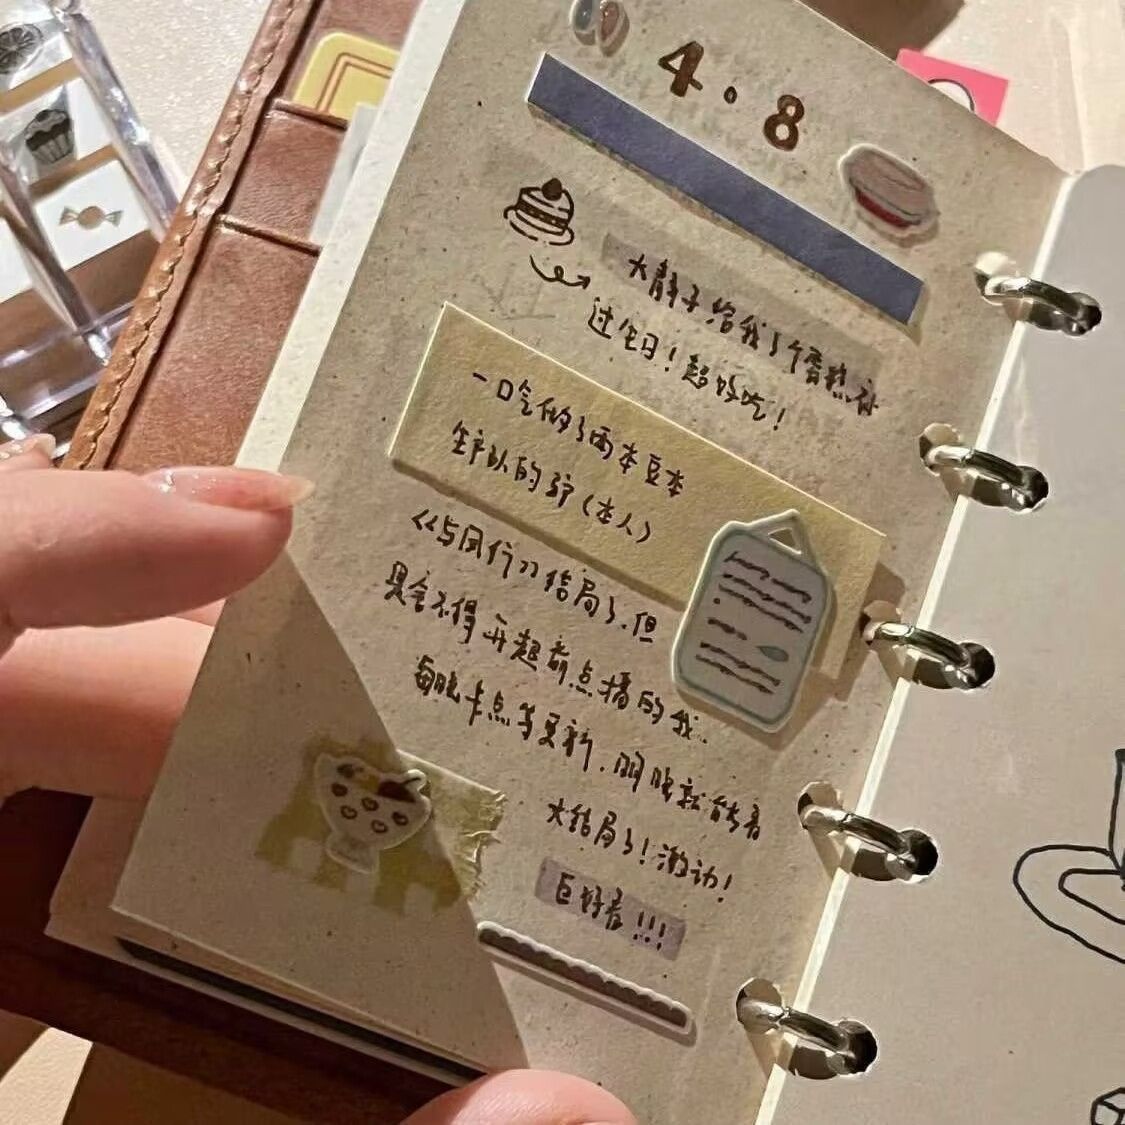 4.8
大胖子给我了个蛋糕补
过生日！超好吃！
一口气做了两本豆本
生产队的驴（本人）
《与凤行》结局了，但
是舍不得开超前点播的我..
每晚卡点等更新，明晚就能看
大结局了！激动！
巨好看！！！